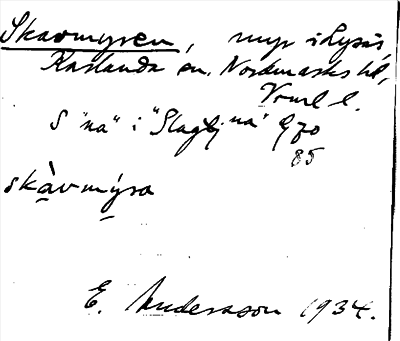 Skavmyren, myr i Lysås,
Karlanda sn. Nordmarks hd,
Vrml l.
S "na" i "Slagtj na" Ezo
85
skàvmýra
E. Andersson 1934.